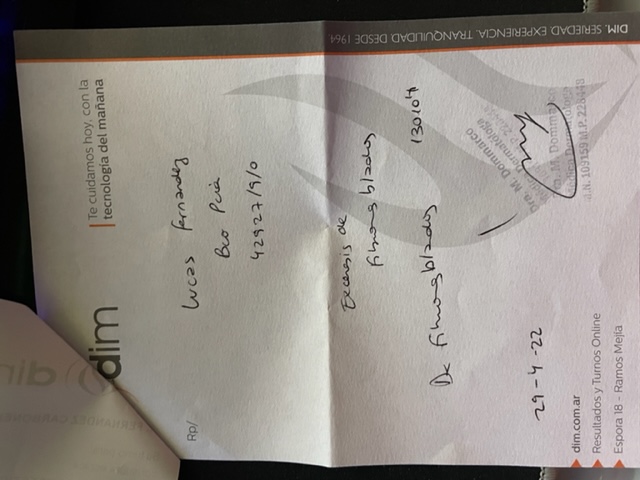 dim
Te cuidamos hoy, con la
tecnología del mañana
Rp/
Lucas Fernandez
Bco Pcia
42927/9/0
Exceresis de
Fibrong blados
Dx Fibrong blados 130104
Dra. M. Dommarco
Médica Dermatóloga
Dra. M. Dommarco
Médica Dermatóloga
M.N. 109159 M.P. 228448
29-4-22
dim.com.ar
Resultados y Turnos Online
Espora 18 - Ramos Mejía
DIM. SERIEDAD. EXPERIENCIA. TRANQUILIDAD. DESDE 1964.